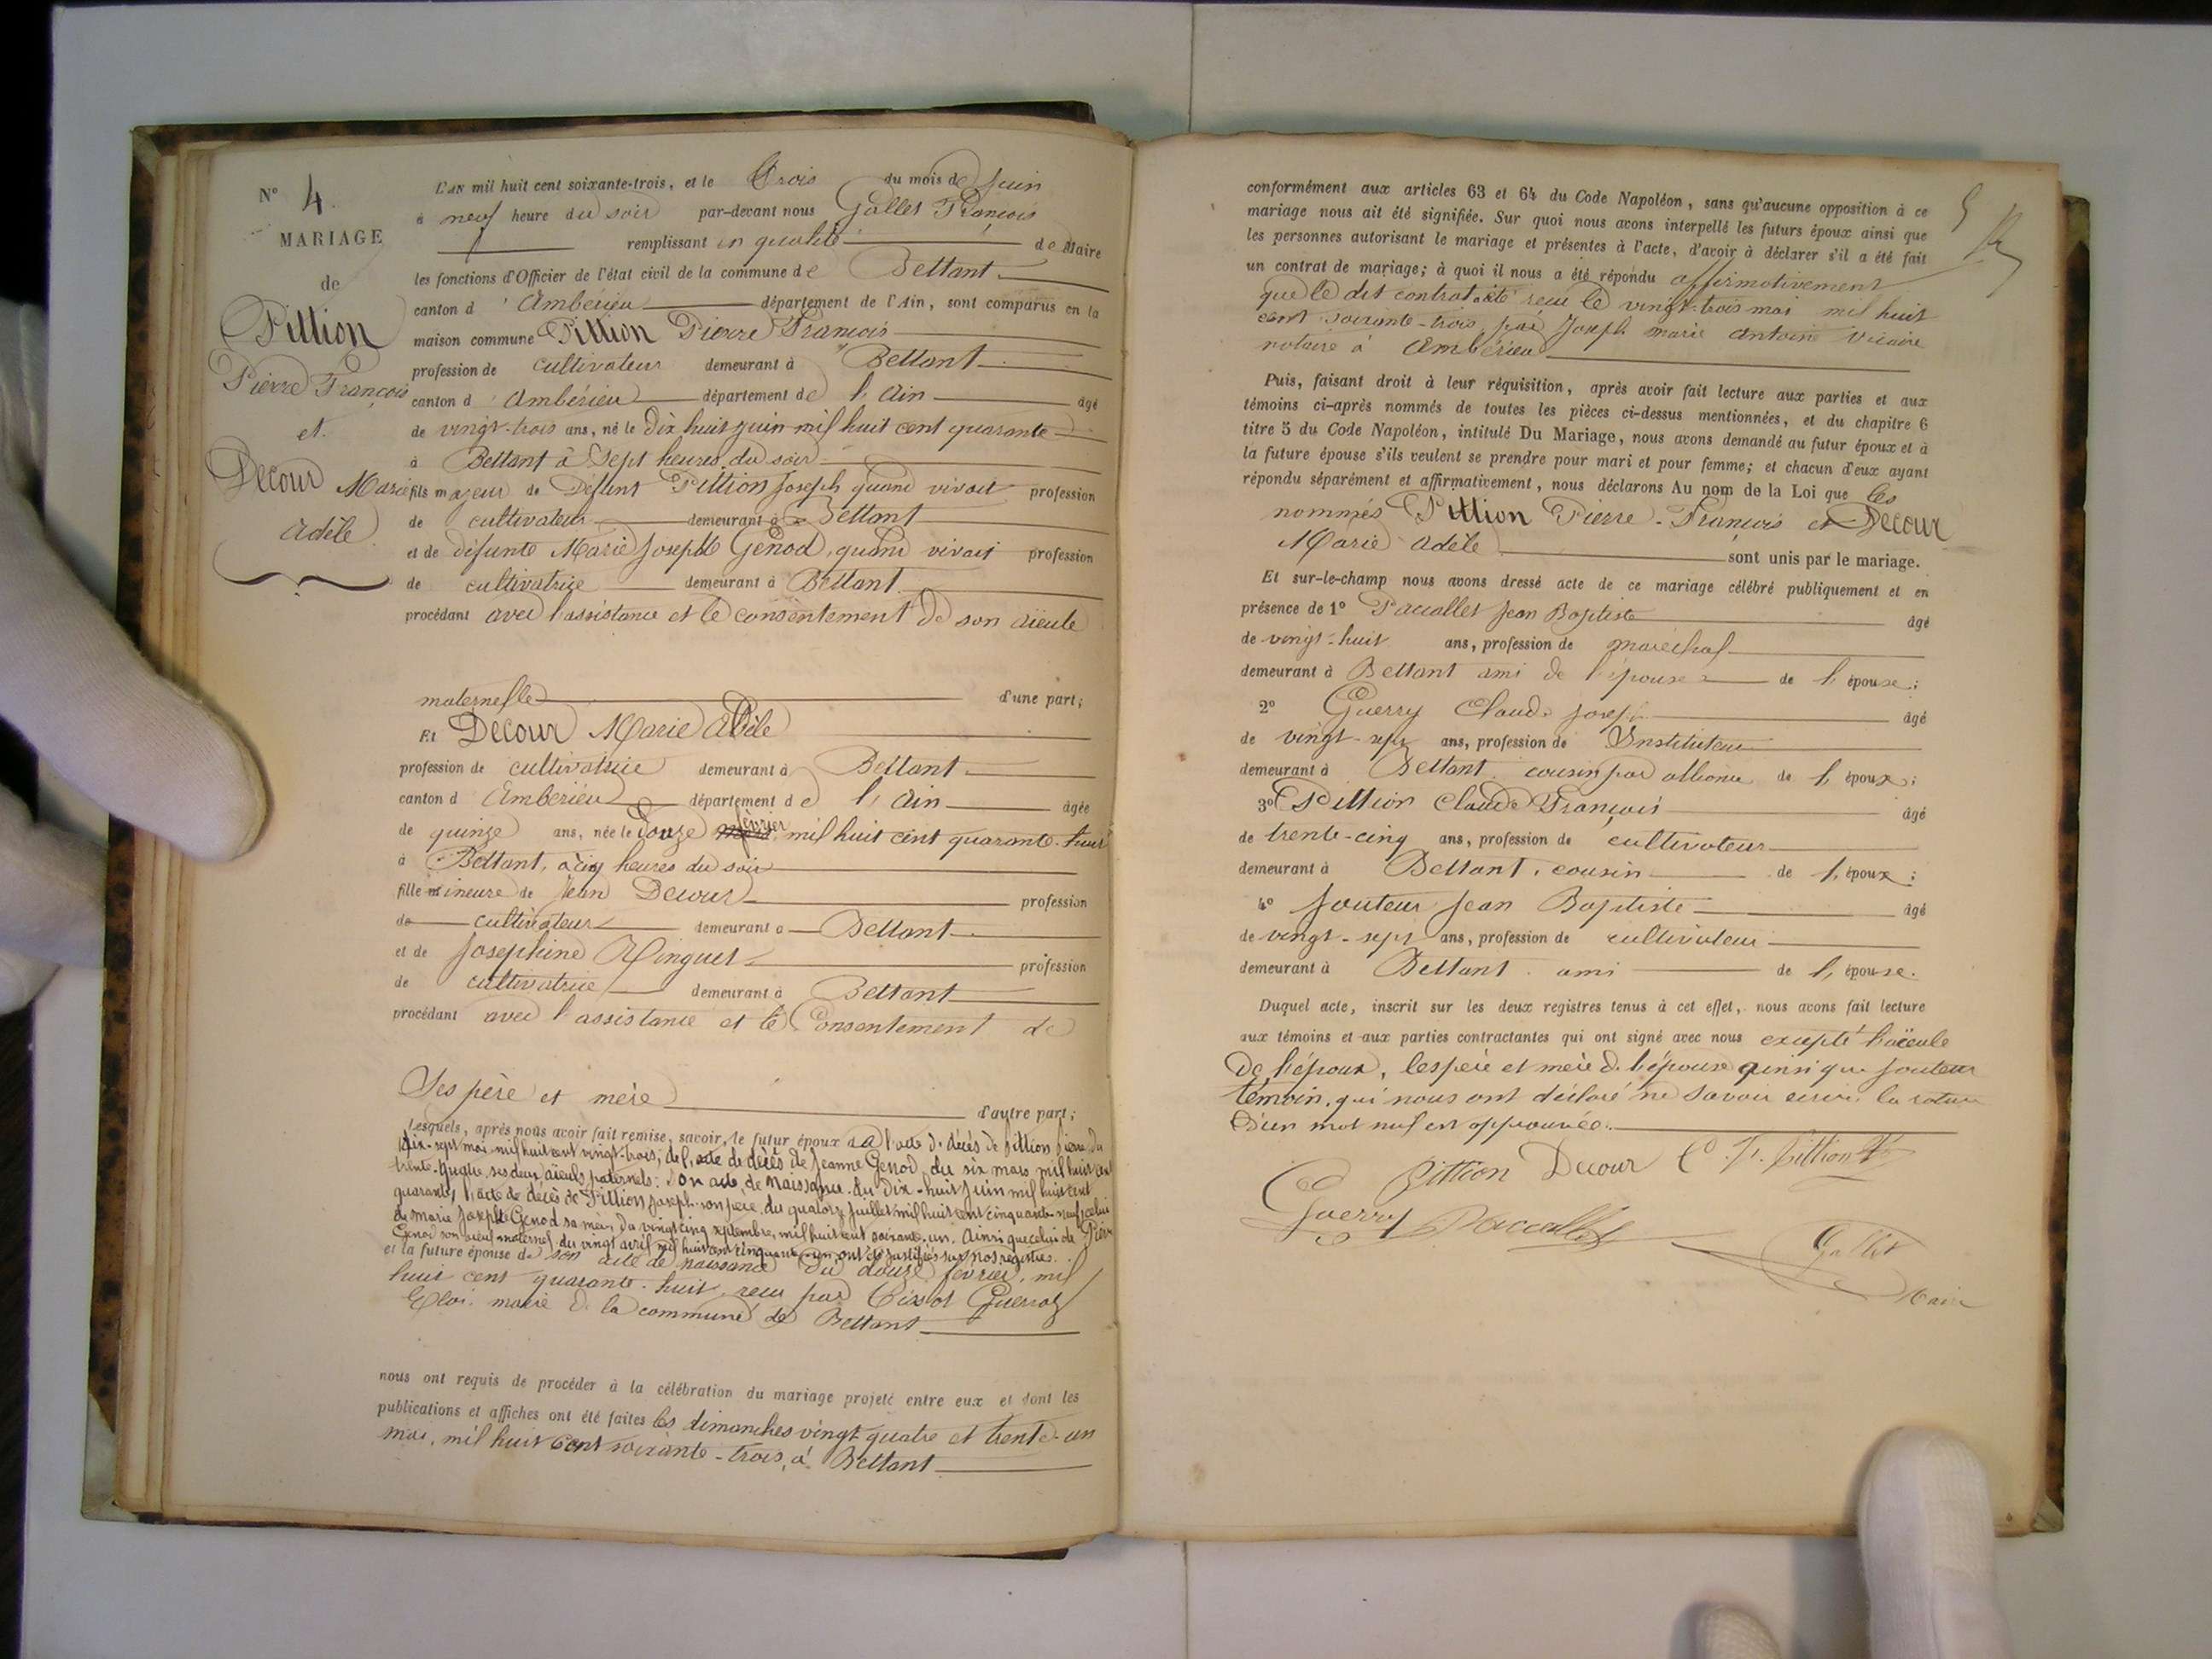 N° 4.
MARIAGE
de
Pittion
Pierre François
et
Decour Marie
Adèle
L'AN mil huit cent soixante-trois, et le Trois du mois de Juin
à neuf heure du soir par-devant nous Gallet François
remplissant en qualité de Maire
les fonctions d'Officier de l'état civil de la commune de Bettant
canton d'Ambérieu département de l'Ain, sont comparus en la
maison commune Pittion Pierre François
profession de cultivateur demeurant à Bettant
canton d'Ambérieu département de l'Ain âgé
de vingt-trois ans, né le Dix huit juin mil huit cent quarante
à Bettant à Sept heures du soir
fils majeur de Defunt Pittion Joseph quand vivait profession
de cultivateur demeurant à Bettant
et de défunte Marie Josephte Genod, quand vivait profession
de cultivatrice demeurant à Bettant
procédant avec l'assistance et le consentement de son aïeule
maternelle d'une part;
Et Decour Marie Adèle
profession de cultivatrice demeurant à Bettant
canton d'Ambérieu département de l'Ain âgée
de quinze ans, née le Douze février mil huit cent quarante-huit
à Bettant, à cinq heures du soir
fille mineure de Jean Decour profession
de cultivateur demeurant à Bettant
et de Josephine Ringuet profession
de cultivatrice demeurant à Bettant
procédant avec l'assistance et le Consentement de
Ses père et mère d'autre part;
Lesquels, après nous avoir fait remise, savoir, le futur époux de l'acte de décès de Pittion Pierre du
dix-sept mai mil huit cent vingt-trois; de l'acte de décès de Jeanne Genod, du six mars mil huit cent
trente- ses deux aïeuls paternels: Son acte de naissance du Dix-huit Juin mil huit cent
quarante, l'acte de décès de Pittion Joseph son père du quatorze Juillet mil huit cent cinquante-neuf, celui
de Marie Josephte Genod sa mère, du vingt cinq septembre, mil huit cent soixante-un. Ainsi que celui de Pierre
Genod son aïeul maternel du vingt avril mil huit cent cinquante-un ont été justifiés sur nos registres.
et la future épouse de son acte de naissance du douze février, mil
huit cent quarante-huit, reçu par Bissot Guerroz
Eloi, maire de la commune de Bettant
nous ont requis de procéder à la célébration du mariage projeté entre eux et dont les
publications et affiches ont été faites les dimanches vingt-quatre et trente-un
mai, mil huit cent soixante-trois, à Bettant
conformément aux articles 63 et 64 du Code Napoléon, sans qu'aucune opposition à ce
mariage nous ait été signifiée. Sur quoi nous avons interpellé les futurs époux ainsi que
les personnes autorisant le mariage et présentes à l'acte, d'avoir à déclarer s'il a été fait
un contrat de mariage; à quoi il nous a été répondu affirmativement
que le dit contrat a été reçu le vingt-trois mai mil huit
cent soixante-trois, par Joseph Marie Antoine Vicaire
notaire à Ambérieu
Puis, faisant droit à leur réquisition, après avoir fait lecture aux parties et aux
témoins ci-après nommés de toutes les pièces ci-dessus mentionnées, et du chapitre 6
titre 5 du Code Napoléon, intitulé Du Mariage, nous avons demandé au futur époux et à
la future épouse s'ils veulent se prendre pour mari et pour femme; et chacun d'eux ayant
répondu séparément et affirmativement, nous déclarons Au nom de la Loi que les
nommés Pittion Pierre-François et Decour
Marie Adèle sont unis par le mariage.
Et sur-le-champ nous avons dressé acte de ce mariage célébré publiquement et en
présence de 1° Paccallet Jean Baptiste âgé
de vingt-huit ans, profession de maréchal
demeurant à Bettant ami de l'épouse de l'épouse;
2° Guerry Claude Joseph âgé
de vingt-sept ans, profession de Instituteur
demeurant à Bettant cousin par alliance de l'époux;
3° Pittion Claude François âgé
de trente-cinq ans, profession de cultivateur
demeurant à Bettant, cousin de l'époux;
4° Jouteur Jean Baptiste âgé
de vingt-sept ans, profession de cultivateur
demeurant à Bettant ami de l'épouse.
Duquel acte, inscrit sur les deux registres tenus à cet effet, nous avons fait lecture
aux témoins et aux parties contractantes qui ont signé avec nous excepté l'aïeule
De l'époux, les père et mère de l'épouse ainsi que Jouteur
témoin, qui nous ont déclaré ne savoir écrire la rature
D'un mot nul est approuvée.
Pittion Decour C. F. Pittion
Guerry Paccallet
Gallet
Maire